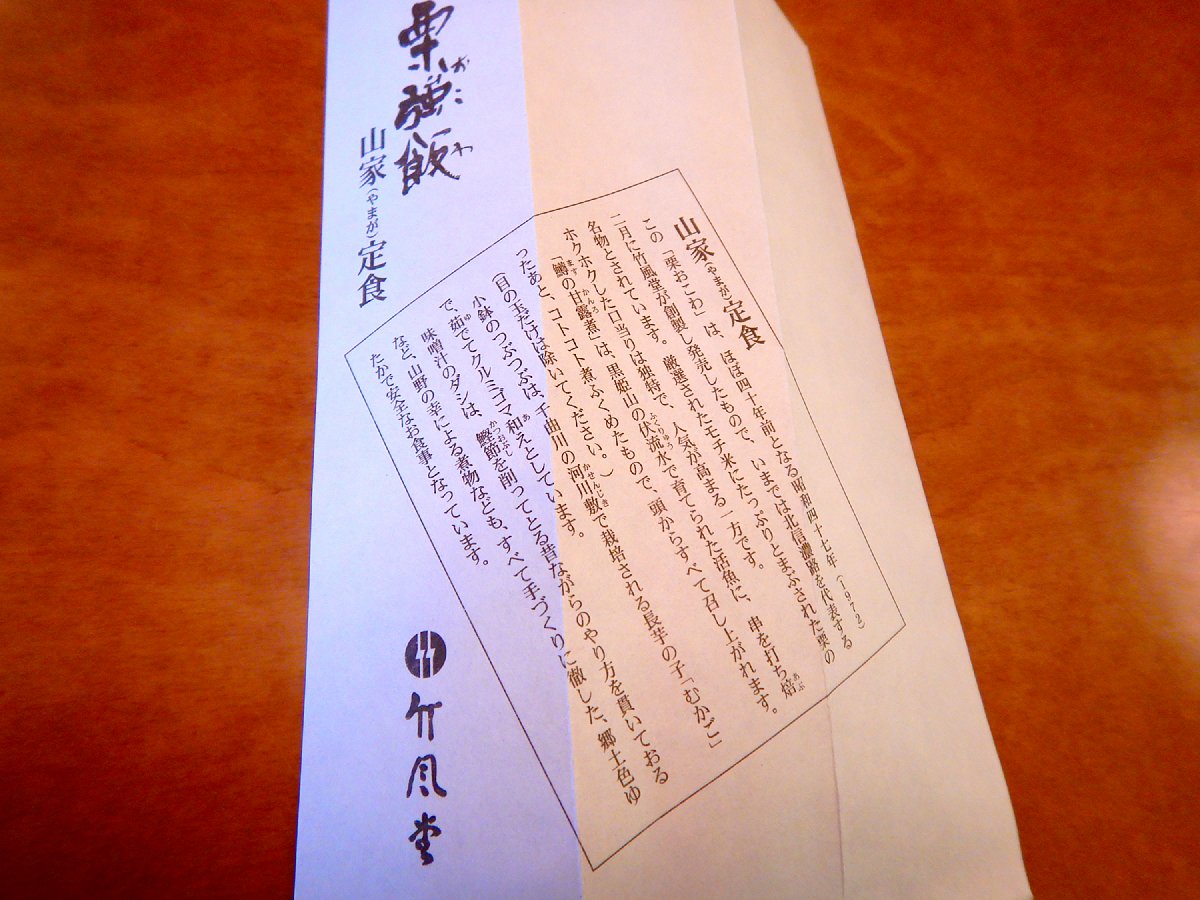 栗強飯
おこわ
山家(やまが)定食
山家(やまが)定食
この「栗おこわ」は、ほぼ四十年前となる昭和四十七年(1972)
二月に竹風堂が創製し発売したもので、いまでは北信濃路を代表する
名物とされています。厳選されたモチ米にたっぷりとまぶされた栗の
ホクホクした口当りは独特で、人気が高まる一方です。
「鱒(ます)の甘露煮(かんろに)」は、黒姫山の伏流水(ふくりゅうすい)で育てられた活魚に、串を打ち焙(あぶ)
ったあと、コトコト煮ふくめたもので、頭からすべて召し上がれます。
(目の玉だけは除いてください。)
小鉢のつぶつぶは、千曲川の河川敷(かせんじき)で栽培される長芋の子「むかご」
で、茹(ゆ)でてクルミゴマ和(あ)えとしています。
味噌汁のダシは、鰹節(かつおぶし)を削ってとる昔ながらのやり方を貫いておる
など、山野の幸による煮物なども、すべて手づくりに徹した、郷土色ゆ
たかで安全なお食事となっています。
竹風堂